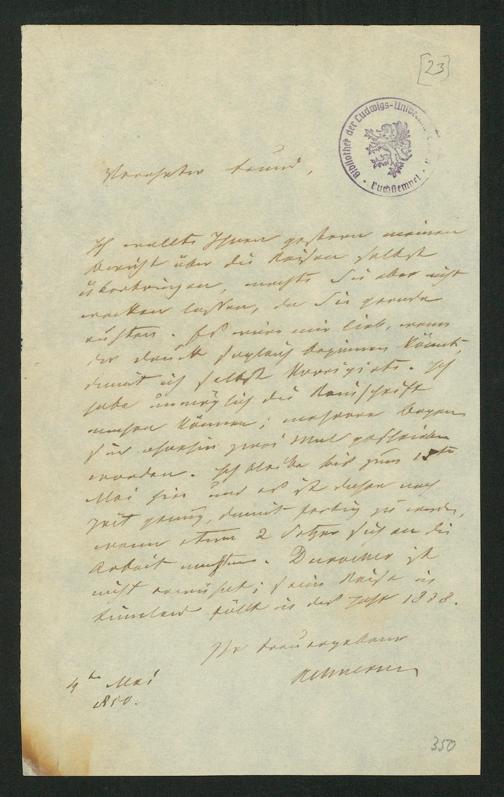 [23]
Bibliothek der Ludwigs-Univer
Buchstempel
Verehrter Freund,
Ich wollte Ihnen gestern meinen
Bericht über die Reisen selbst
überbringen, mochte Sie aber nicht
wecken lassen, da Sie gerade
ruhten. Es wäre mir lieb, wenn
der Druck sogleich beginnen könnte,
damit ich selbst korrigirte. Ich
habe unmöglich die Reinschrift
machen können; mehrere Bogen
sind ohnehin zwei Mal geschrieben
worden. Ich bleibe bis zum 15ten
Mai hier und es ist daher noch
Zeit genug, damit fertig zu werden,
wenn etwa 2 Setzer sich an die
Arbeit machten. Durocher ist
nicht vermisst; seine Reise in
Finnland fällt in das Jahr 18
Ihr treuergebener
4ten Mai
1850.
350